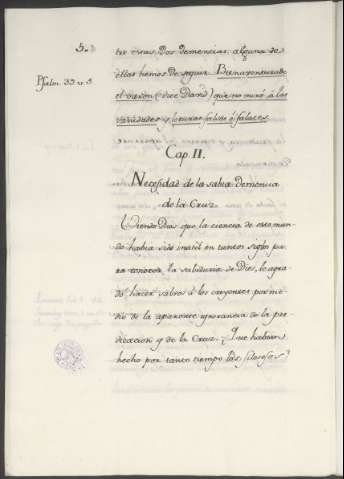 5.
Psalm. 39 v. 5
tas vivas. Dos demencias, alguna de
ellas hemos de seguir. Bienaventurado
el varón (dice David) que no miró á las
vanidades y locuras falsas ó falaces.
Cap. II.
Necesidad de la sabia Demencia
de la Cruz.
Viendo Dios que la ciencia de este mun-
do habia sido inutil en tantos siglos pa-
ra conocer la sabiduria de Dios, le agra-
dó hacer salvos á los creyentes por me-
dio de la aparente ignorancia de la pre-
dicacion y de la Cruz. ¿Que habian
hecho por tanto tiempo los filosofos?